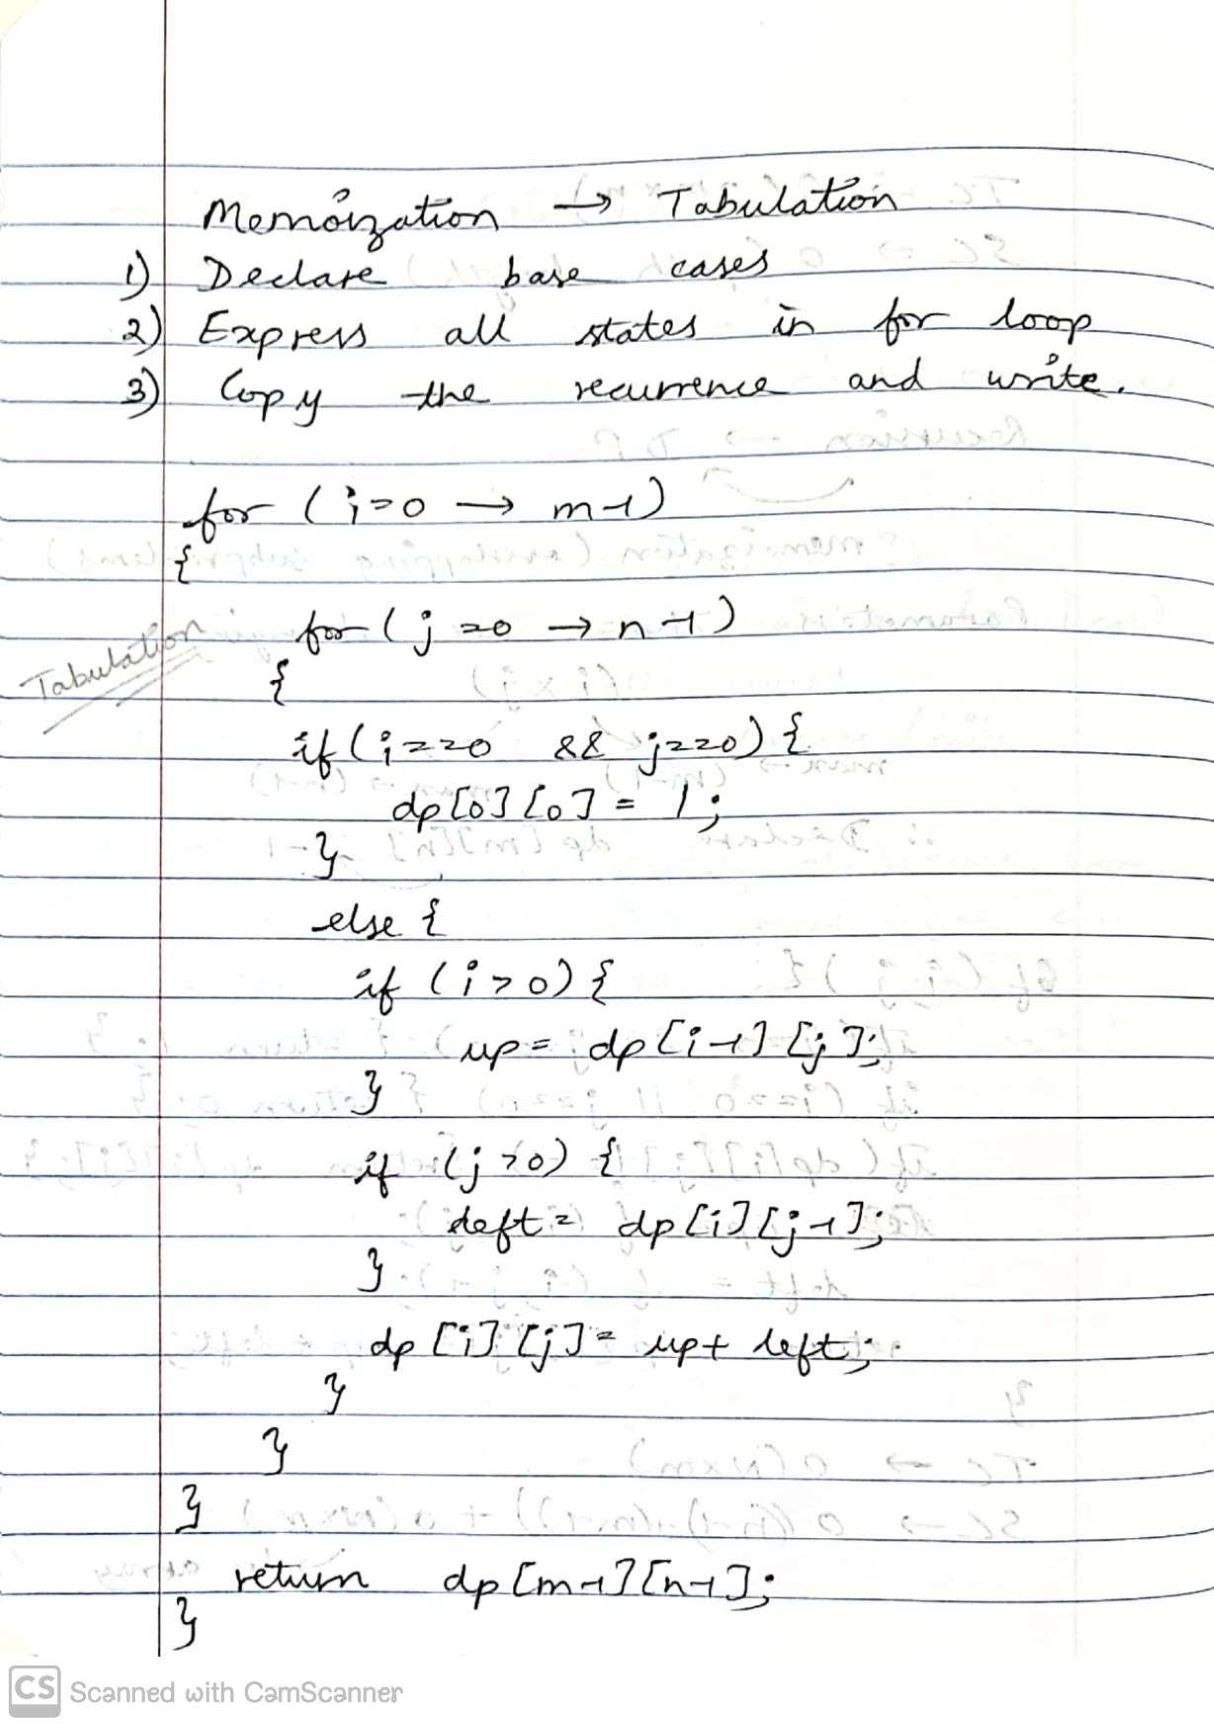 Memoization → Tabulation
1) Declare base cases
2) Express all states in for loop
3) Copy the recurrence and write.
for (i=0 → m-1)
{
for (j=0 → n-1)
Tabulation
{
if (i==0 && j==0) {
dp[0][0] = 1;
}
else {
if (i>0) {
up = dp[i-1][j];
}
if (j>0) {
left = dp[i][j-1];
}
dp[i][j] = up + left;
}
}
}
return dp[m-1][n-1];
}
CS Scanned with CamScanner